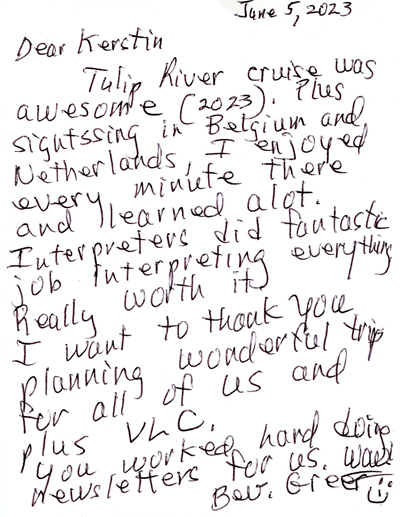 June 5, 2023
Dear Kerstin
Tulip River cruise was
awesome (2023). Plus
sightssing in Belgium and
Netherlands, I enjoyed
every minute there
and learned alot.
Interpreters did fantastic
job interpreting everything
Really worth it
I want to thank you
planning wonderful trip
for all of us and
plus VLC.
You worked hard doing
newsletters for us.
Bev. Greer